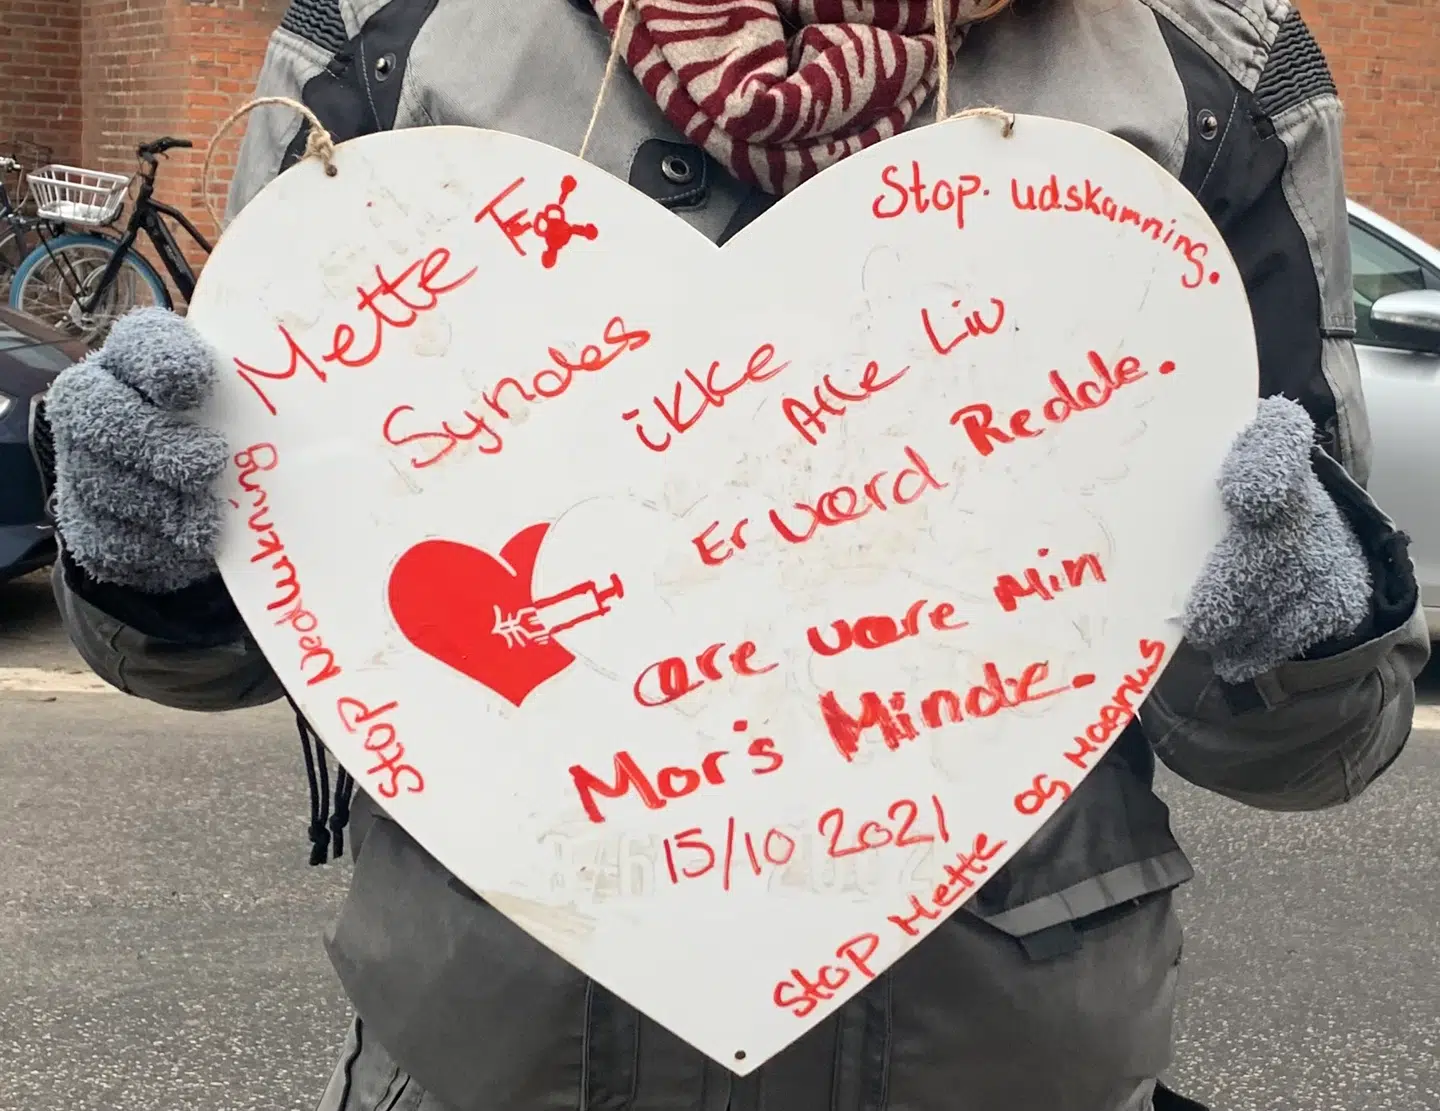 Mette F
Syndes
ikke
Alle Liv
Er værd Redde.
ære være Min
Mor's Minde.
15/10 2021
Stop. udskamning.
Stop Nedlukning
Stop Mette og Magnus